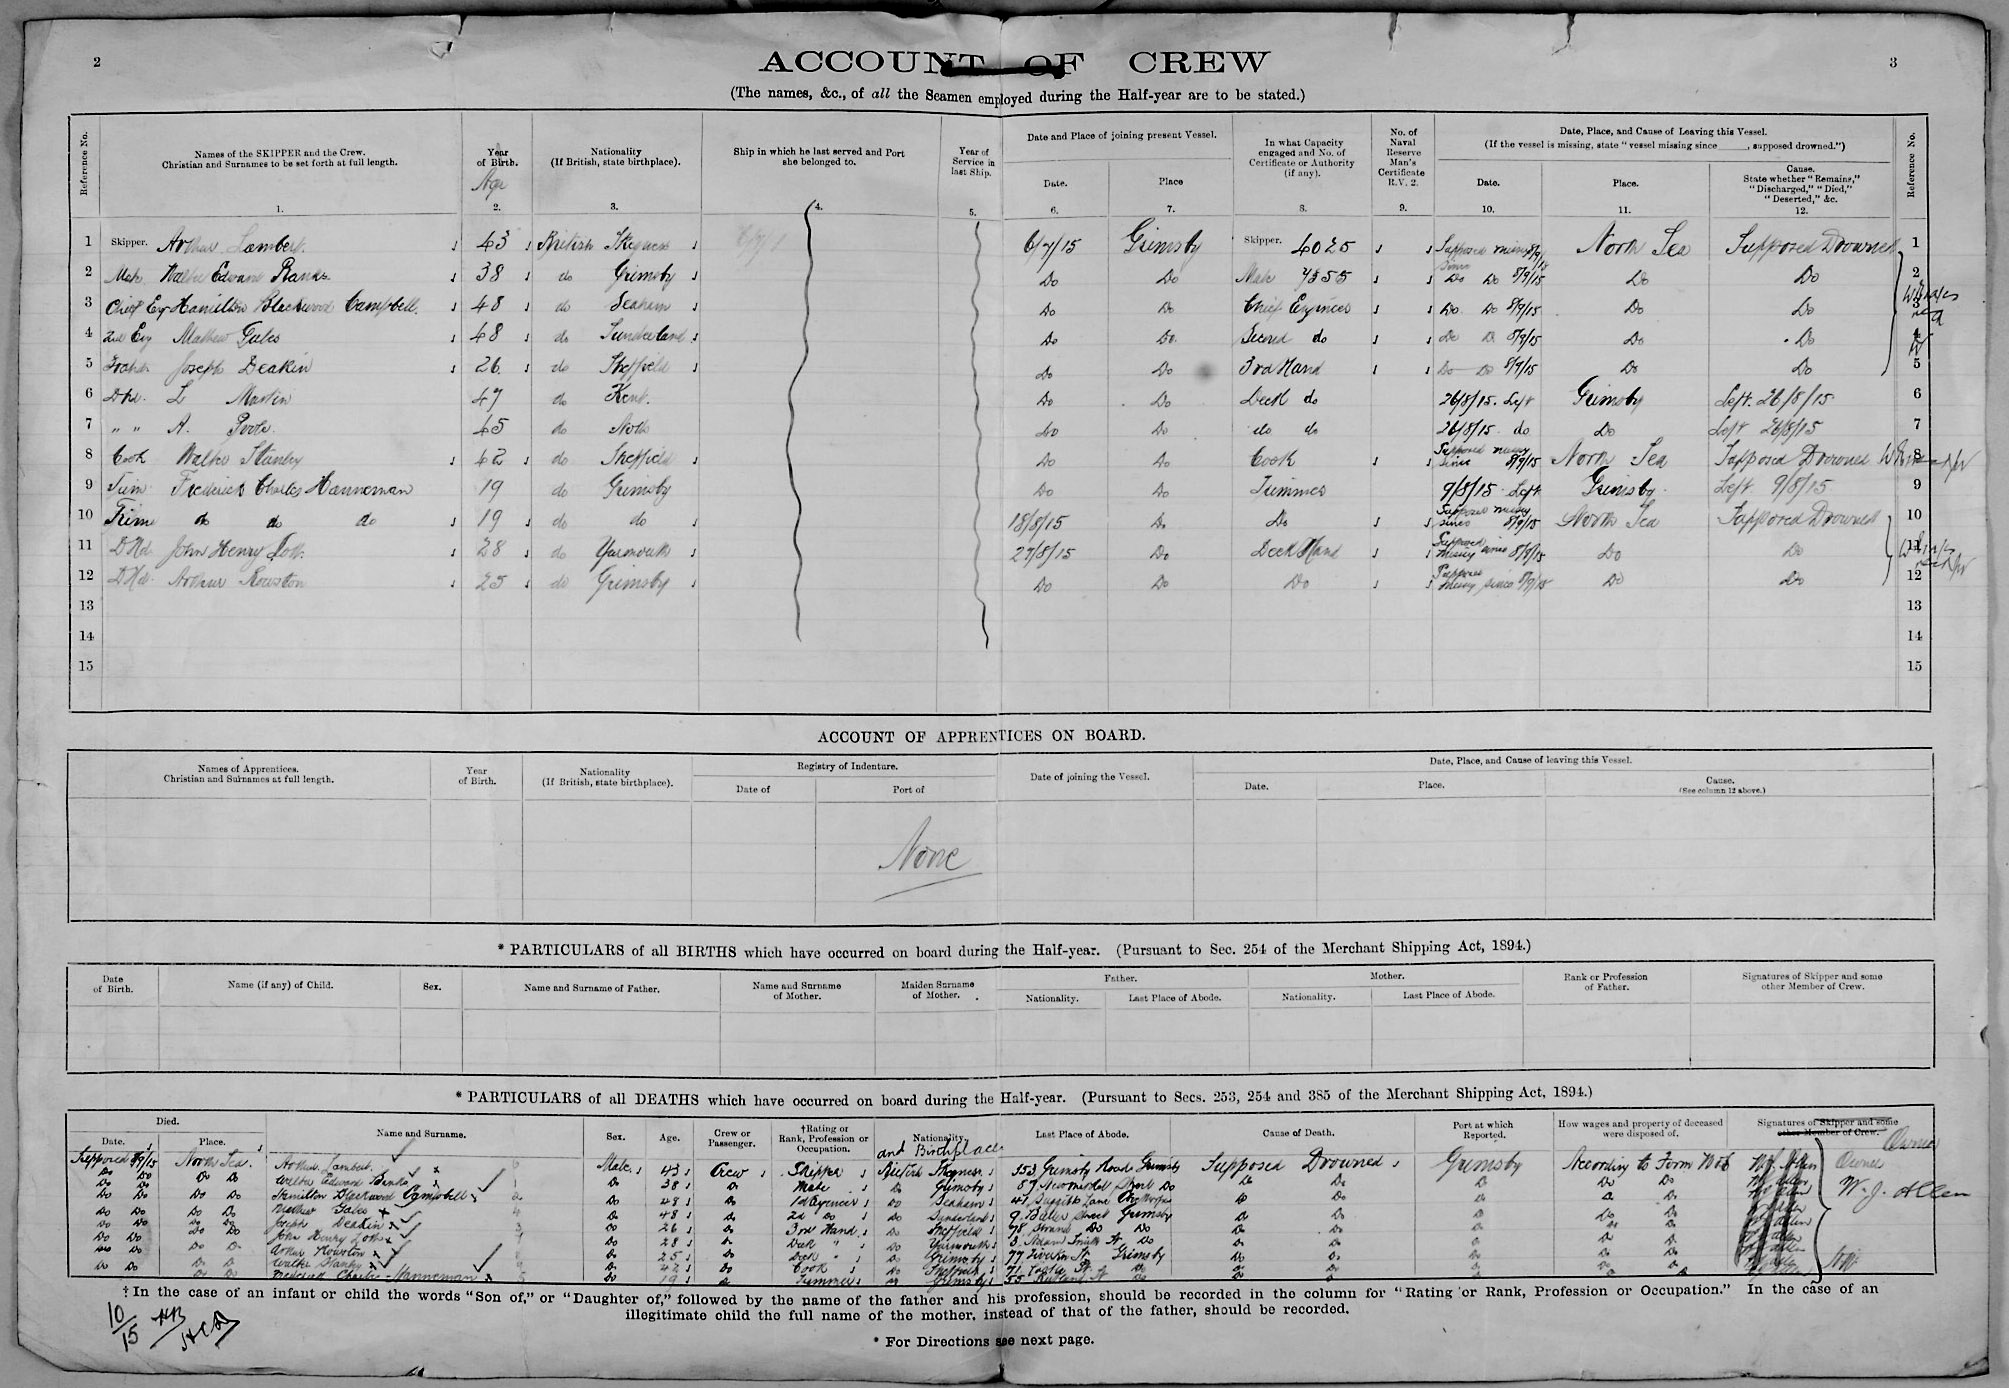 2
ACCOUNT OF CREW
3
(The names, &c., of all the Seamen employed during the Half-year are to be stated.)
Reference No.
Names of the SKIPPER and the Crew.
Christian and Surnames to be set forth at full length.
1.
Year
of Birth.
Age
2.
Nationality
(If British, state birthplace).
3.
Ship in which he last served and Port
she belonged to.
4.
Year of
Service in
last Ship.
5.
Date and Place of joining present Vessel.
Date.
6.
Place
7.
In what Capacity
engaged and No. of
Certificate or Authority
(if any).
8.
No. of
Naval
Reserve
Man's
Certificate
R.V. 2.
9.
Date, Place, and Cause of Leaving this Vessel.
(If the vessel is missing, state "vessel missing since ____, supposed drowned.")
Date.
10.
Place.
11.
Cause.
State whether "Remains,"
"Discharged," "Died,"
"Deserted," &c.
12.
Reference No.
1 Skipper. Arthur Lambert 43 British Skegness 6/7/15 Grimsby Skipper. 4025 Supposed missing since 8/9/15 North Sea Supposed Drowned 1
2 Mate Walter Edward Banks 38 do Grimsby Do Do Mate 7355 Do Do 8/9/15 Do Do 2
3 Chief Eng Hamilton Blackwood Campbell 48 do Seaham Do Do Chief Engineer Do Do 8/9/15 Do Do 3
4 2nd Eng Mathew Gales 48 do Sunderland Do Do Second do Do Do 8/9/15 Do Do 4
5 Joseph Deakin 26 do Sheffield Do Do 3rd Hand Do Do 8/9/15 Do Do 5
6 L Martin 47 do Kent. Do Do Deck do 26/8/15. Left Grimsby Left. 26/8/15 6
7 " " A. Poole 45 do Do Do do do 26/8/15 do Do Left 26/8/15 7
8 Cook Walter Stanley 42 do Sheffield Do Do Cook Supposed missing since 8/9/15 North Sea Supposed Drowned 8
9 Trim Frederick Charles Hanneman 19 do Grimsby Do Do Trimmer 9/8/15 Left Grimsby Left. 9/8/15 9
10 Trim do do do 19 do do 18/8/15 Do Do Supposed missing since 8/9/15 North Sea Supposed Drowned 10
11 D Hd. John Henry 28 do Yarmouth 27/8/15 Do Deck Hand Supposed missing since 8/9/15 Do Do 11
12 D Hd. Arthur Rowston 25 do Grimsby Do Do Do Supposed missing since 8/9/15 Do Do 12
13 13
14 14
15 15
ACCOUNT OF APPRENTICES ON BOARD.
Names of Apprentices.
Christian and Surnames at full length.
Year
of Birth.
Nationality
(If British, state birthplace).
Registry of Indenture.
Date of
Port of
Date of joining the Vessel.
Date, Place, and Cause of leaving this Vessel.
Date.
Place.
Cause.
(See column 12 above.)
None
* PARTICULARS of all BIRTHS which have occurred on board during the Half-year. (Pursuant to Sec. 254 of the Merchant Shipping Act, 1894.)
Date
of Birth.
Name (if any) of Child.
Sex.
Name and Surname of Father.
Name and Surname
of Mother.
Maiden Surname
of Mother.
Father.
Nationality.
Last Place of Abode.
Mother.
Nationality.
Last Place of Abode.
Rank or Profession
of Father.
Signatures of Skipper and some
other Member of Crew.
* PARTICULARS of all DEATHS which have occurred on board during the Half-year. (Pursuant to Secs. 253, 254 and 385 of the Merchant Shipping Act, 1894.)
Died.
Date.
Place.
Name and Surname.
Sex.
Age.
Crew or
Passenger.
†Rating or
Rank, Profession or
Occupation.
Nationality.
and Birthplace
Last Place of Abode.
Cause of Death.
Port at which
Reported.
How wages and property of deceased
were disposed of.
Signatures of Skipper and some
other Member of Crew.
Owner
Supposed 8/9/15 North Sea. Arthur Lambert. Male 43 Crew Skipper British Skegness 353 Grimsby Road Grimsby Supposed Drowned Grimsby According to Form W. J. Allen Owner
Do Do Do Do Walter Edward Banks Do 38 Do Mate Do Grimsby Do Do Do
Do Do Do Do Hamilton Blackwood Campbell Do 48 Do Do Seaham Do Do W. J. Allen
Do Do Do Do Mathew Gales Do 48 Do 2d Do Do Sunderland Street Grimsby Do Do
Do Do Do Do Joseph Deakin Do 26 Do 3rd Hand Do Sheffield Do Do Do Do
Do Do Do Do John Henry Do 28 Do Deck " Do Yarmouth Do Do Do
Do Do Do Do Arthur Rowston Do 25 Do Deck " Do Grimsby Grimsby Do Do
Do Do Do Do Walter Stanley Do 42 Do Cook Do Sheffield Do Do
Do Do Frederick Charles Hanneman Do 19 Trimmer Grimsby
† In the case of an infant or child the words "Son of," or "Daughter of," followed by the name of the father and his profession, should be recorded in the column for "Rating or Rank, Profession or Occupation." In the case of an
illegitimate child the full name of the mother, instead of that of the father, should be recorded.
* For Directions see next page.
10/15